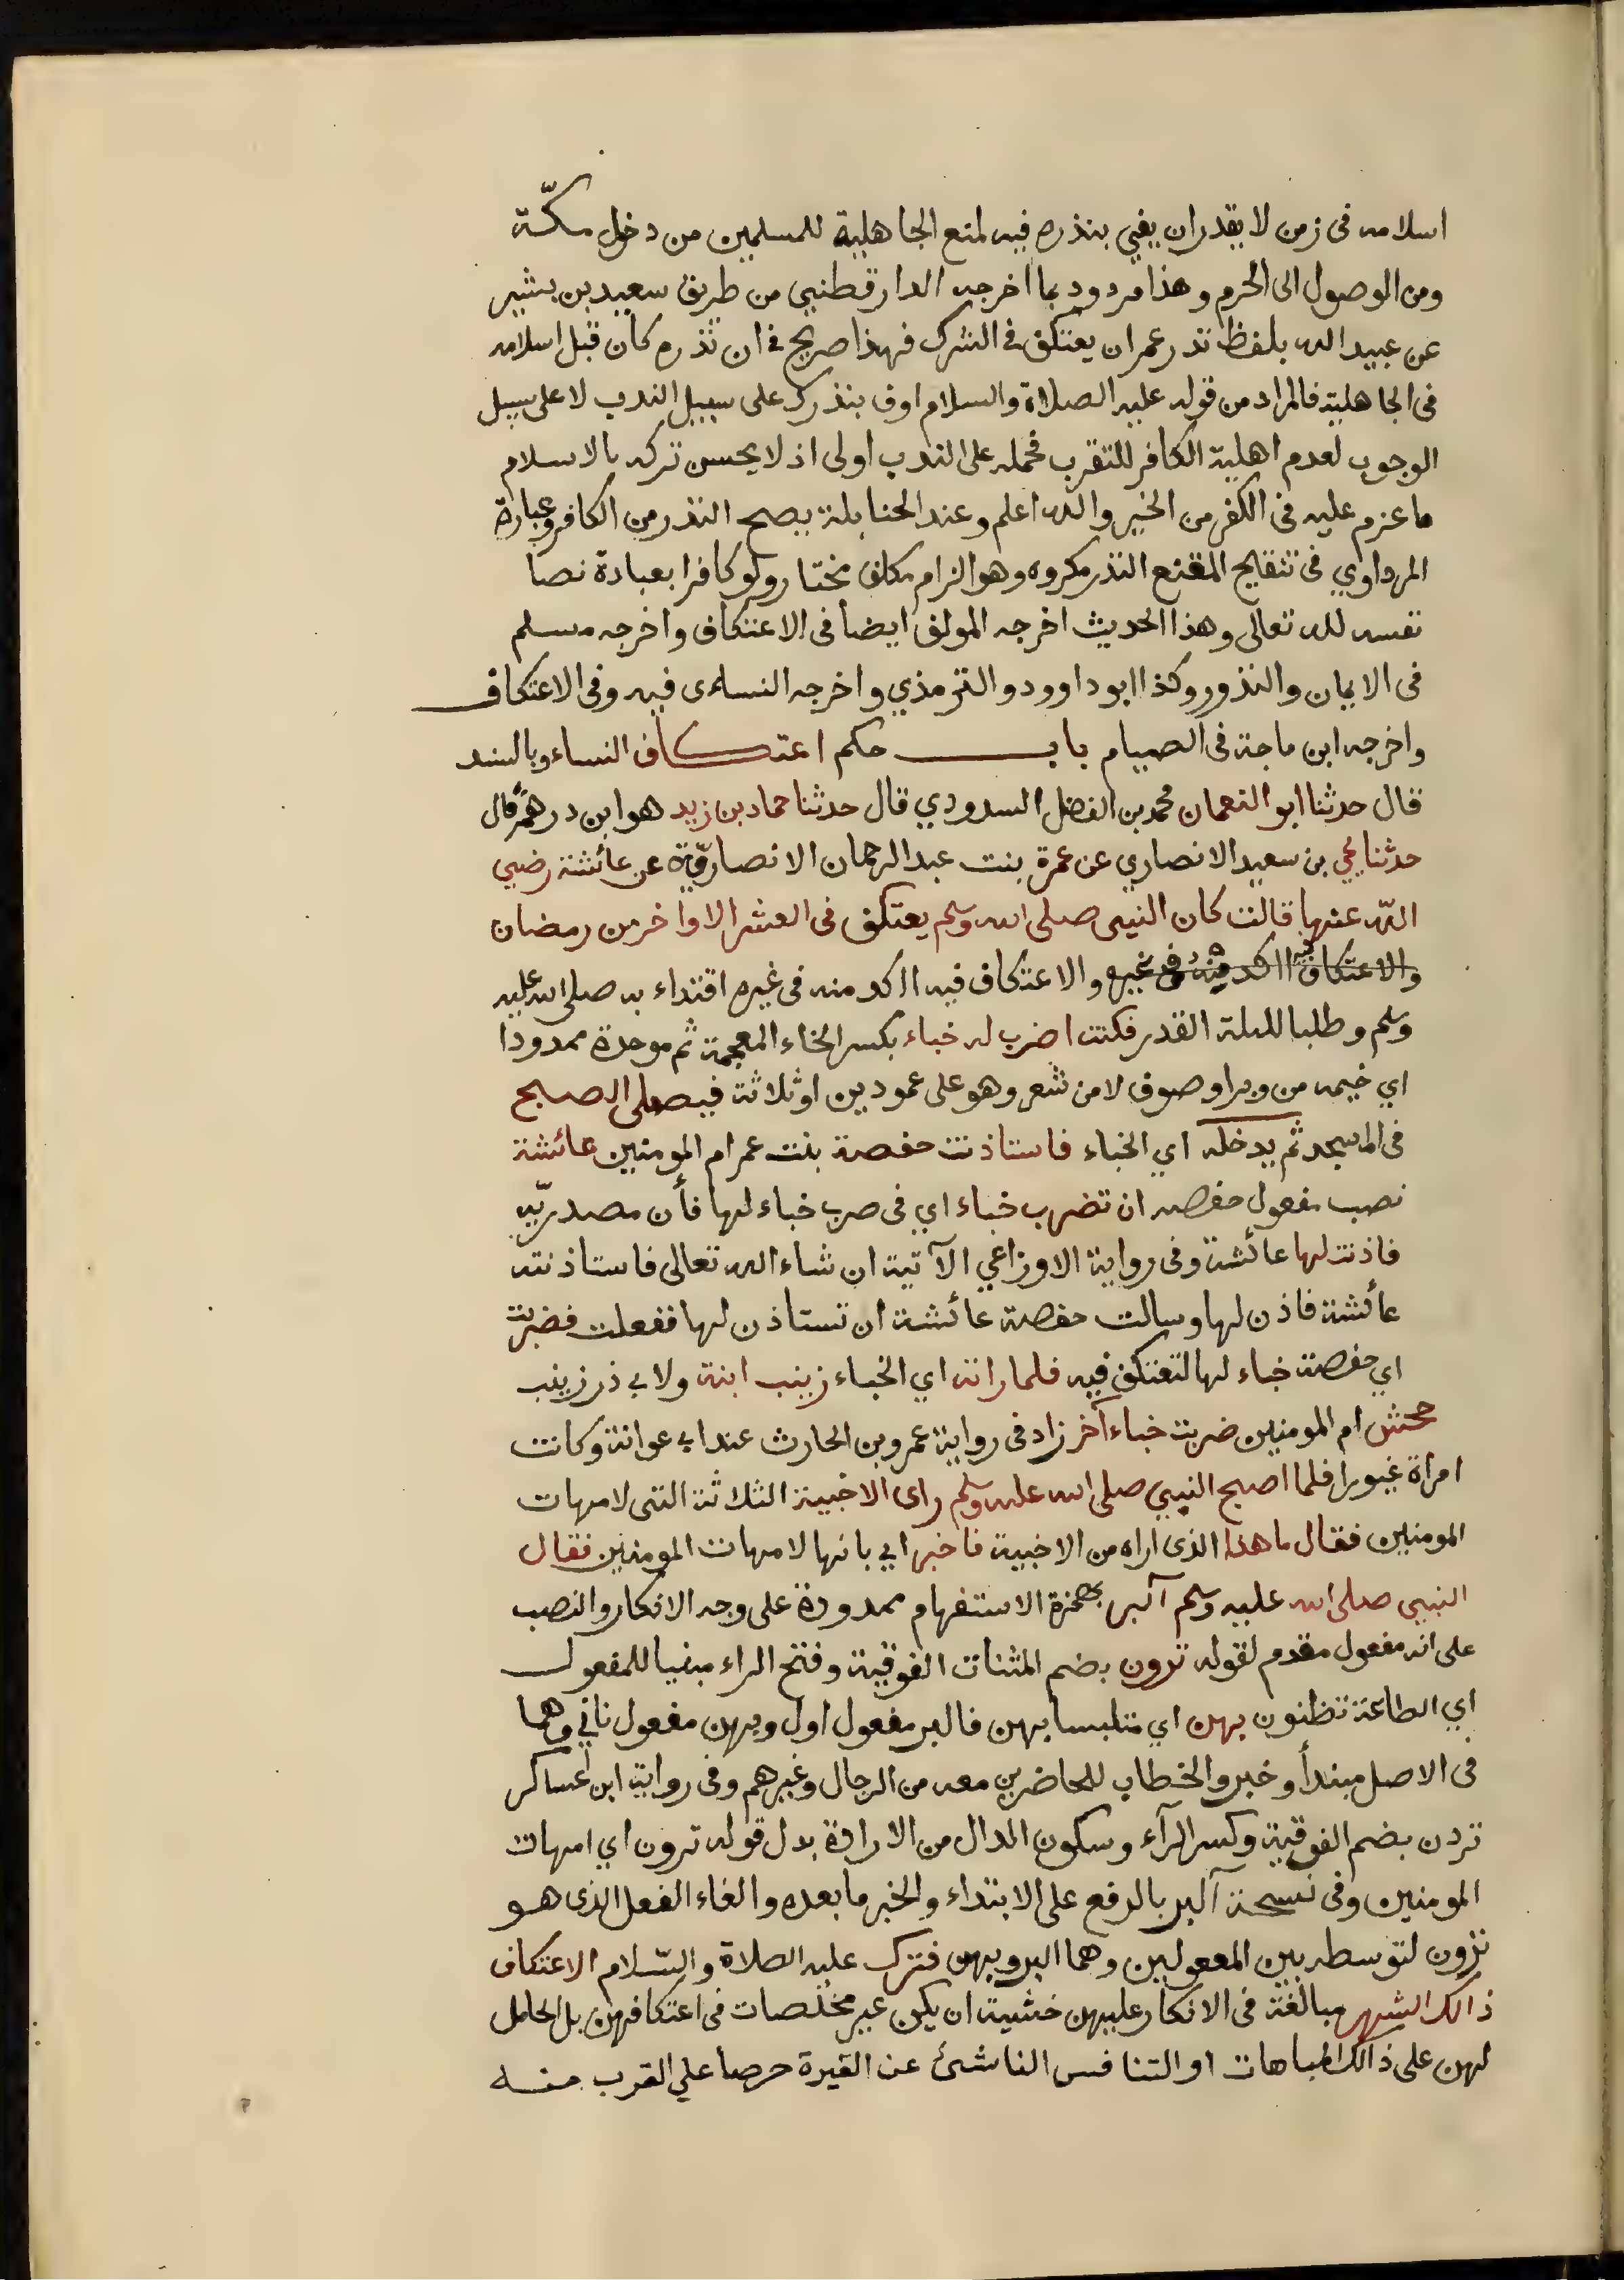 اسلامه فى زمن لا يقدر ان يفي بنذره فيه لمنع الجاهلية للمسلمين من دخول مكّة
ومن الوصول الى الحرم وهذا مردود بما اخرجه الدارقطني من طريق سعيد بن بشير
عن عبيد الله بلفظ نذر عمر ان يعتكف فى الشرك فهذا صريح فى ان نذره كان قبل اسلامه
فى الجاهلية فالمراد من قوله عليه الصلاة والسلام اوف بنذرك على سبيل الندب لا على سبيل
الوجوب لعدم اهلية الكافر للتقرب فحمله على الندب اولى اذ لا يحسن تركه بالاسلام
ما عزم عليه فى الكفر من الخير والله اعلم وعند الحنابلة يصح النذر من الكافر وعبارة
المرداوي فى تنقيح المقنع النذر مكروه وهو الزام مكلف مختار ولو كافرا بعبادة نصا
نفسه لله تعالى وهذا الحديث اخرجه المولف ايضا فى الاعتكاف واخرجه مسلم
فى الايمان والنذور وكذا ابو داوود والترمذي واخرجه النساءى فيه وفى الاعتكاف
واخرجه ابن ماجة فى الصيام باب حكم اعتكاف النساء وبالسند
قال حدثنا ابو النعمان محمد بن الفضل السدودي قال حدثنا حماد بن زيد هو ابن درهم قال
حدثنا يحي بن سعيد الانصاري عن عمرة بنت عبد الرحمان الانصاريّة عن عائشة رضي
الله عنها قالت كان النبى صلى الله وسلم يعتكف فى العشر الاواخر من رمضان
والاعتكاف فيه ااكد منه فى غيره والاعتكاف فيه ااكد منه فى غيره اقتداء به صلى الله عليه
وسلم وطلبا لليلة القدر فكنت اضرب له خباء بكسر الخاء المعجمة ثم موحدة ممدودا
اي خيمه من وبر او صوف لا من شعر وهو على عمودين او ثلاثة فيصلى الصبح
فى المسجد ثم يدخله اي الخباء فاستاذنت حفصة بنت عمر ام المومنين عائشة
نصب مفعول حفصه ان تضرب خباء اي فى صرب خباء لها فأن مصدريّه
فاذنت لها عائشة وفى رواية الاوزاعي الآتية ان شاء الله تعالى فاستاذنته
عائشة فاذن لها وسالت حفصة عائشة ان تستاذن لها ففعلت فضربت
اي حفصة خباء لها لتعتكف فيه فلما راته اي الخباء زينب ابنة ولابي ذر زينب
جحش ام المومنين ضربت خباء آخر زاد فى رواية عمرو بن الحارث عند ابي عوانة وكانت
امراة غيورا فلما اصبح النبي صلى الله عليه وسلم راى الاخبية الثلاثة التى لامهات
المومنين فقال ما هذا الذى اراه من الاخبية فاخبر اي بانها لامهات المومنين فقال
النبي صلى الله عليه وسلم آلبر بهمزة الاستفهام ممدودة على وجه الانكار والنصب
على انه مفعول مقدم لقوله ترون بضم المثناة الفوقية وفتح الراء مبنيا للمفعول
اي الطاعة تظنون بهن اي متلبسا بهن فالبر مفعول اول وبهن مفعول ثاني وهما
فى الاصل مبتدأ وخبر والخطاب للحاضرين معه من الرجال وغيرهم وفى رواية ابن عساكر
تردن بضم الفوقية وكسر الرآء وسكون الدال من الارادة بدل قوله ترون اي امهات
المومنين وفى نسخة آلبر بالرفع على الابتداء والخبر ما بعده والغاء الفعل الذى هو
ترون لتوسطه بين المعمولين وهما البر وبهن فترك عليه الصلاة والسّلام الاعتكاف
ذالك الشهر مبالغة فى الانكار عليهن خشية ان يكن غير مخلصات فى اعتكافهن بل الحامل
لهن على ذالك المباهات او التنافس الناشئ عن الغيرة حرصا علي القرب منه